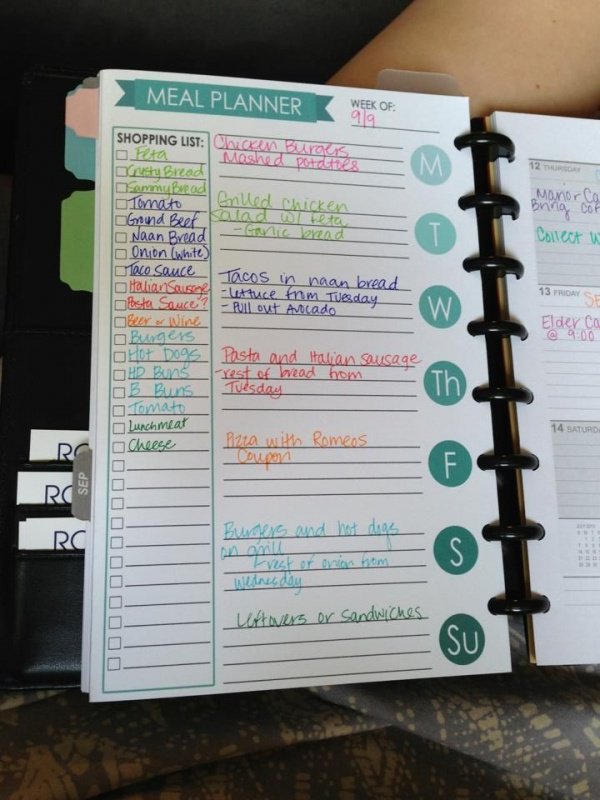 MEAL PLANNER
WEEK OF:
9/9
SHOPPING LIST:
Feta
Crusty Bread
Sammy Bread
Tomato
Ground Beef
Naan Bread
Onion (white)
Taco Sauce
Italian Sausage
Pasta Sauce?
Beer or Wine
Burgers
Hot Dogs
HD Buns
B Buns
Tomato
Lunchmeat
Cheese
Chicken Burgers
Mashed potatoes
M
Grilled chicken
salad w/ feta
- Garlic bread
T
Tacos in naan bread
- Lettuce from Tuesday
- Pull out Avocado
W
Pasta and Italian sausage
- rest of bread from
Tuesday
Th
Pizza with Romeos
Coupon
F
Burgers and hot dogs
on grill
rest of onion from
wednesday
S
Leftovers or sandwiches
Su
SEP
RO
RO
RC
12 THURSDAY
Manor Ca
Bring
Collect W
13 FRIDAY
Elder Ca
@ 9:00
14 SATURDA